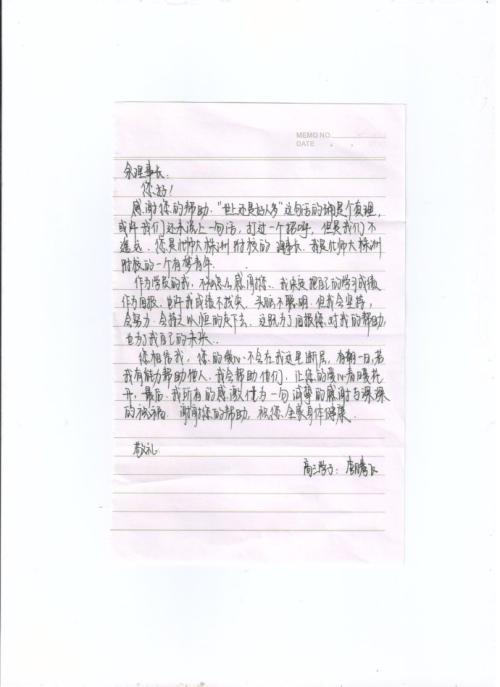 MEMO NO
DATE
余理事长:
您好!
感谢您的帮助."世上还是好人多"这句话的确是个真理,
或许我们还未说上一句话,打过一个招呼,但是我们不
遥远.您是北师大株洲附校的理事长.我是北师大株洲
附校的一个有梦青年.
作为学校的我,不知怎么感谢您.我决定把自己的学习成绩
作为回报,也许我成绩不拔尖,头脑不聪明,但我会坚持,
会努力,会持之以恒的走下去.这既为了回报您对我的帮助,
也为了我自己的未来.
您相信我,您的爱心不会在我这里断层,有朝一日,若
我有能力帮助他人,我会帮助他们,让您的爱心春暖花
开.最后,我所有的感激化为一句诚挚的感谢与深深
的祝福.谢谢您的帮助,祝您全家身体健康.
敬礼
高三学子: